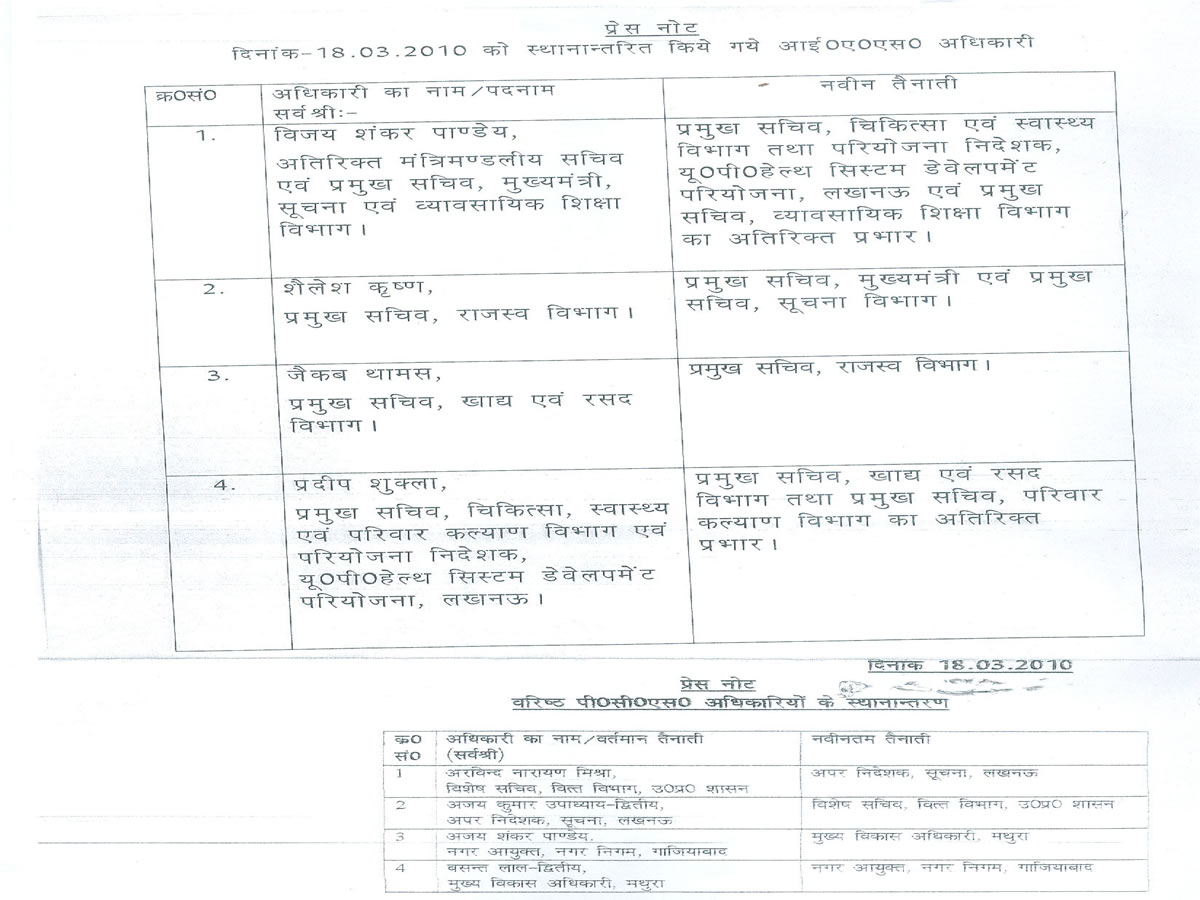 प्रेस नोट
दिनांक-18.03.2010 को स्थानान्तरित किये गये आई0ए0एस0 अधिकारी
क्र0सं0
अधिकारी का नाम/पदनाम
सर्वश्री:-
नवीन तैनाती
1.
विजय शंकर पाण्डेय,
अतिरिक्त मंत्रिमण्डलीय सचिव
एवं प्रमुख सचिव, मुख्यमंत्री,
सूचना एवं व्यावसायिक शिक्षा
विभाग।
प्रमुख सचिव, चिकित्सा एवं स्वास्थ्य
विभाग तथा परियोजना निदेशक,
यू0पी0हेल्थ सिस्टम डेवेलपमेंट
परियोजना, लखनऊ एवं प्रमुख
सचिव, व्यावसायिक शिक्षा विभाग
का अतिरिक्त प्रभार।
2.
शैलेश कृष्ण,
प्रमुख सचिव, राजस्व विभाग।
प्रमुख सचिव, मुख्यमंत्री एवं प्रमुख
सचिव, सूचना विभाग।
3.
जैकब थामस,
प्रमुख सचिव, खाद्य एवं रसद
विभाग।
प्रमुख सचिव, राजस्व विभाग।
4.
प्रदीप शुक्ला,
प्रमुख सचिव, चिकित्सा, स्वास्थ्य
एवं परिवार कल्याण विभाग एवं
परियोजना निदेशक,
यू0पी0हेल्थ सिस्टम डेवेलपमेंट
परियोजना, लखनऊ।
प्रमुख सचिव, खाद्य एवं रसद
विभाग तथा प्रमुख सचिव, परिवार
कल्याण विभाग का अतिरिक्त
प्रभार।
दिनांक 18.03.2010
प्रेस नोट
वरिष्ठ पी0सी0एस0 अधिकारियों के स्थानान्तरण
क्र0
सं0
अधिकारी का नाम/वर्तमान तैनाती
(सर्वश्री)
नवीनतम तैनाती
1
अरविन्द नारायण मिश्रा,
विशेष सचिव, वित्त विभाग, उ0प्र0 शासन
अपर निदेशक, सूचना, लखनऊ
2
अजय कुमार उपाध्याय-द्वितीय,
अपर निदेशक, सूचना, लखनऊ
विशेष सचिव, वित्त विभाग, उ0प्र0 शासन
3
अजय शंकर पाण्डेय,
नगर आयुक्त, नगर निगम, गाजियाबाद
मुख्य विकास अधिकारी, मथुरा
4
बसन्त लाल-द्वितीय,
मुख्य विकास अधिकारी, मथुरा
नगर आयुक्त, नगर निगम, गाजियाबाद